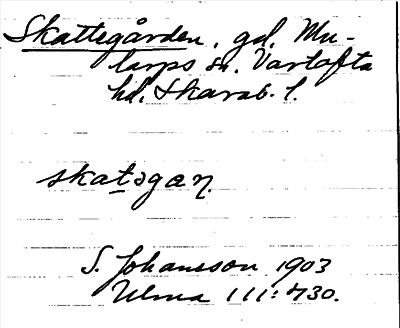 Skattegården, gd, Mu-
larps sn. Vartofta
hd, Skarab. l.
skatəgaɳ
S. Johansson 1903
Ulma 111:430.